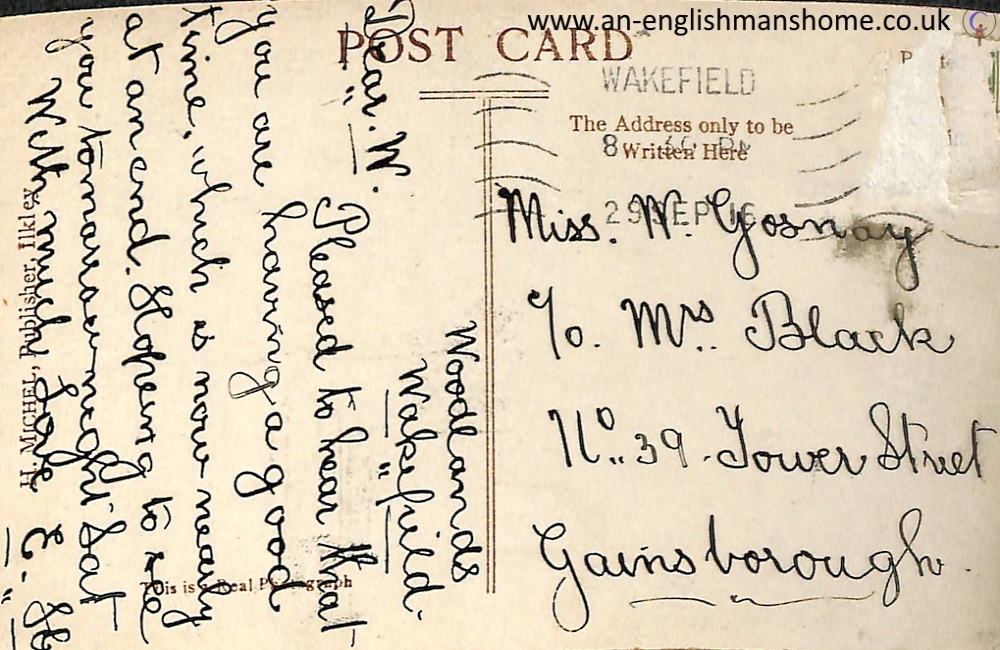 www.an-englishmanshome.co.uk
POST CARD
WAKEFIELD
29 SEP 16
The Address only to be
Written Here
Miss. W. Gosnay
c/o. Mrs. Black
No. 39. Tower Street
Gainsborough.
Woodlands
Wakefield.
Dear. W.
Pleased to hear that
you are having a good
time, which is now nearly
at an end. Hopeing to see
you tomorrow night Sat
With much Love E. H
H. MICHEL, Publisher, Ilkley
This is a Real Photograph